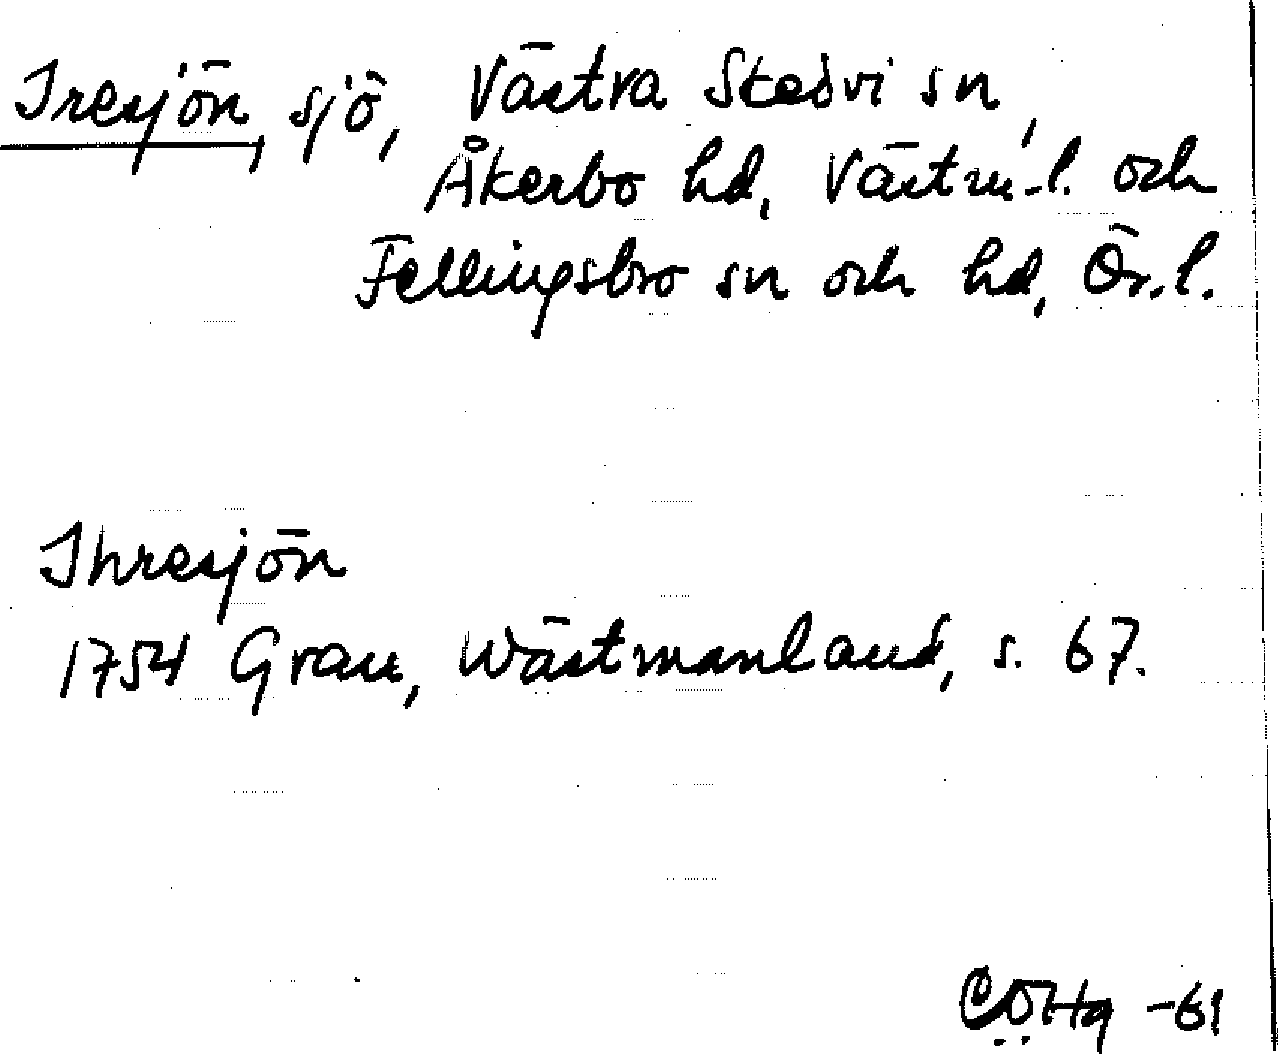 Iresjön, sjö, Västra Skedvi sn,
Åkerbo hd, Västm. l. och
Fellingsbro sn och hd, Ör. l.
Ihresjön
1754 Grau, Wästmanland, s. 67.
-61